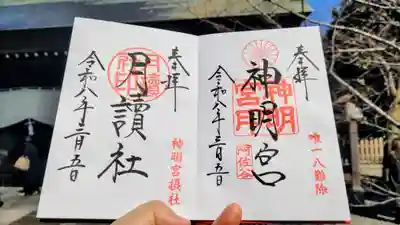 奉拝
神明宮
神明
宮月
阿佐ヶ谷
唯一八難除
令和八年三月五日
奉拝
月讀社
神明宮摂社
令和八年三月五日